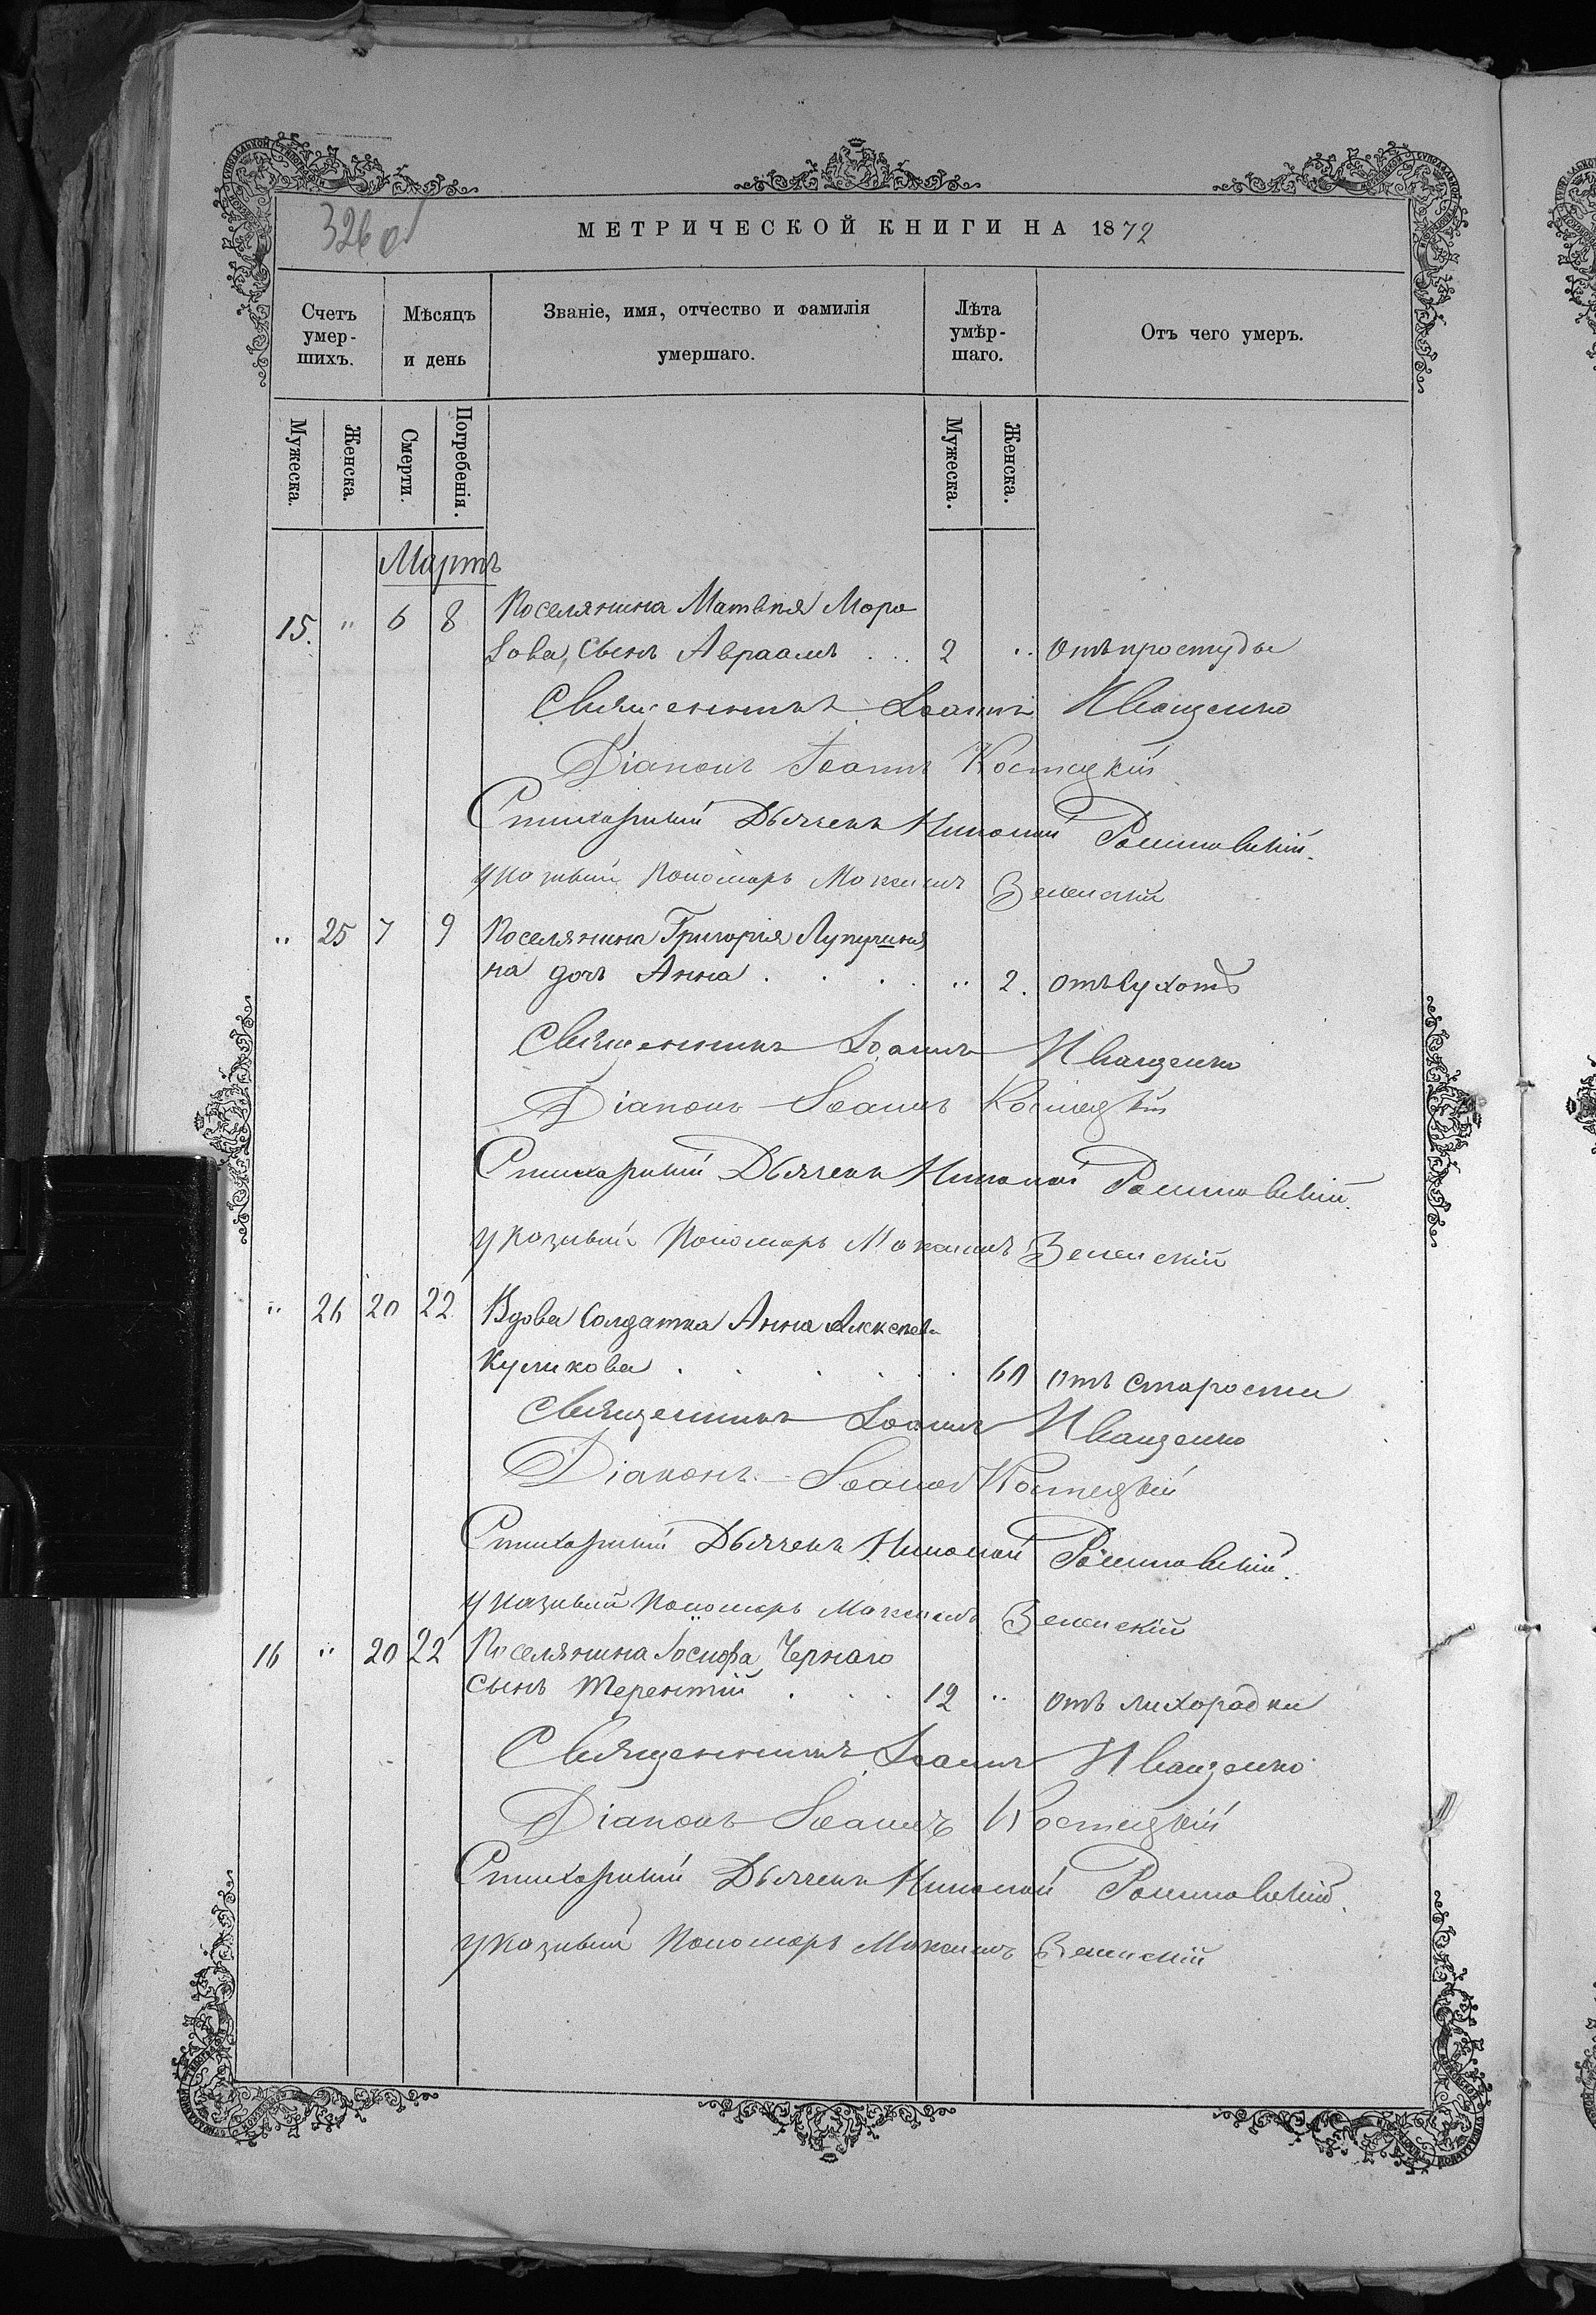 326 об
МЕТРИЧЕСКОЙ КНИГИ НА 1872
Счетъ умер-шихъ.
Мѣсяцъ и день
Званіе, имя, отчество и фамилія умершаго.
Лѣта умѣр-шаго.
Отъ чего умеръ.
Мужеска. Женска. Смерти. Погребенія. Мужеска. Женска.
Мартъ
15. " 6 8 Поселянина Матвѣя Моро
зова, сынъ Авраамъ . . . 2 " отъ простуды
Священникъ Іоаннъ Иващенко
Діаконъ Іоаннъ Костецкій
Стихарный Дьячекъ Николай
Указный Пономарь Максимъ Зеленскій
" 25 7 9 Поселянина Григорія
на дочь Анна . . . . " 2. отъ сухотъ
Священникъ Іоаннъ Иващенко
Діаконъ Іоаннъ Костецкій
Стихарный Дьячекъ Николай
Указный Пономарь Максимъ Зеленскій
" 26 20 22 Вдова Солдатка Анна Алексѣева
Куликова . . . . . . 60 отъ старости
Священникъ Іоаннъ Иващенко
Діаконъ Іоаннъ Костецкій
Стихарный Дьячекъ Николай
Указный Пономарь Максимъ Зеленскій
16 " 20 22 Поселянина Іосифа Чернаго
сынъ Терентій . . . 12 " отъ лихорадки
Священникъ Іоаннъ Иващенко
Діаконъ Іоаннъ Костецкій
Стихарный Дьячекъ Николай
Указный Пономарь Максимъ Зеленскій